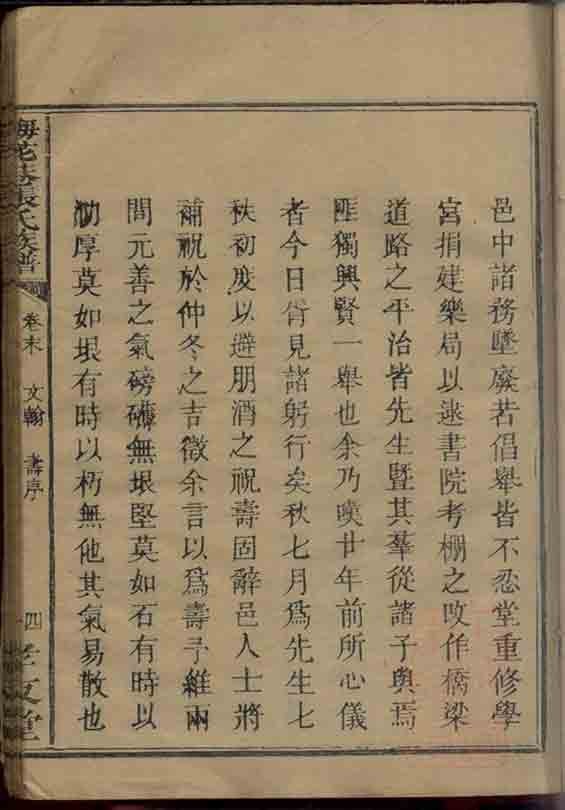 邑中諸務墜廢若倡舉皆不忍堂重修學
宮捐建樂局以逮書院考棚之改作橋梁
道路之平治皆先生暨其羣從諸子與焉
匪獨興賢一舉也余乃嘆廿年前所心儀
者今日胥見諸躬行矣秋七月爲先生七
秩初度以避朋酒之祝壽固辭邑人士將
補祝於仲冬之吉徵余言以爲壽予維兩
間元善之氣磅礴無垠堅莫如石有時以
泐厚莫如垠有時以朽無他其氣易散也
張氏族譜
卷末 文翰 壽序
四
孝友堂